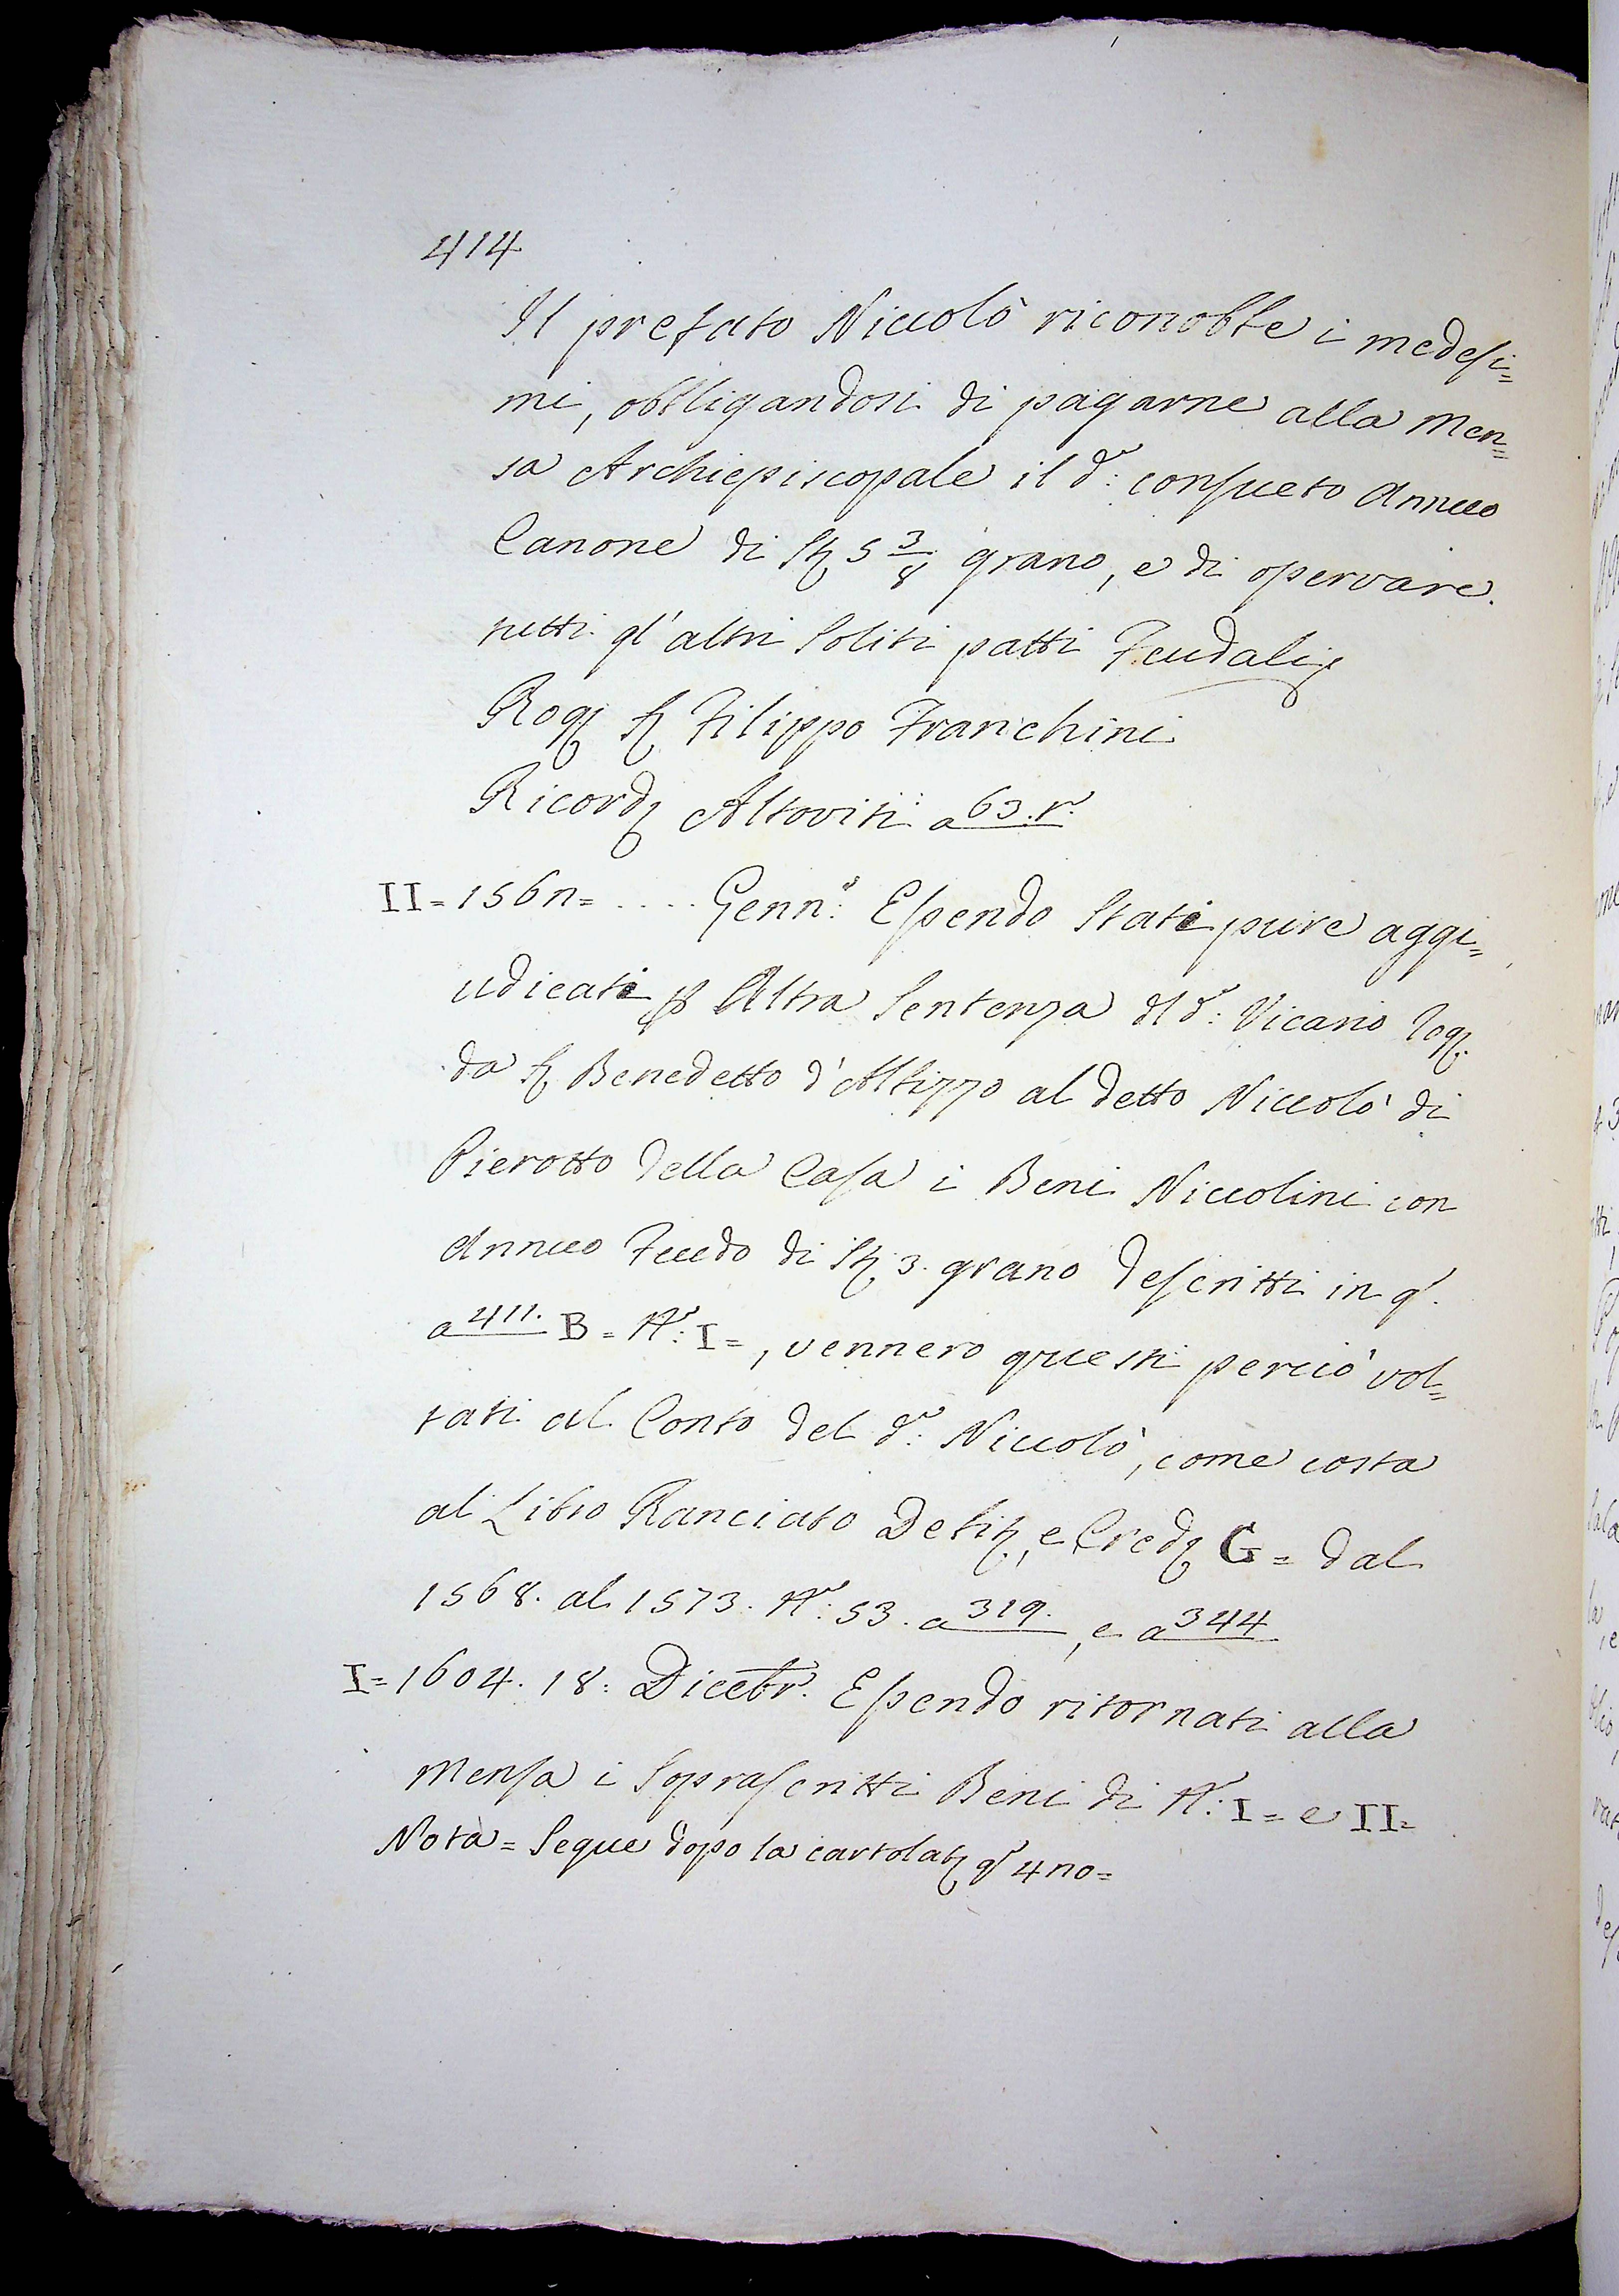 414
Il prefato Niccolò riconobbe i medesi=
mi, obbligandosi di pagarne alla Men=
sa Archiepiscopale il d.º: consueto Annuo
Canone di St 5 3/8 grano, e di osservare
tutti gl' altri soliti patti Feudali
Rog Filippo Franchini
Ricord Altoviti a 63. r.
II = 156n= .... Genn.º: Essendo stati pure aggi=
udicati p Altra Sentenza dl d.º: Vicario rog
da Benedetto d'Albizzo al detto Niccolò di
Pierotto della Casa i Beni Niccolini con
Annuo Feudo di St 3. grano descritti in q.
a 411. B = N.º: I =, vennero questi perciò vol=
tati al Conto del d.º: Niccolò, come costa
al Libro Ranciato Debit, e Cred G = dal
1568. al 1573. N.º: 53. a 319., e a 344
I = 1604. 18: Dicebr. Essendo ritornati alla
Mensa i Soprascritti Beni di N.º: I = e II =
Nota = Segue dopo la cartolat q 4no=